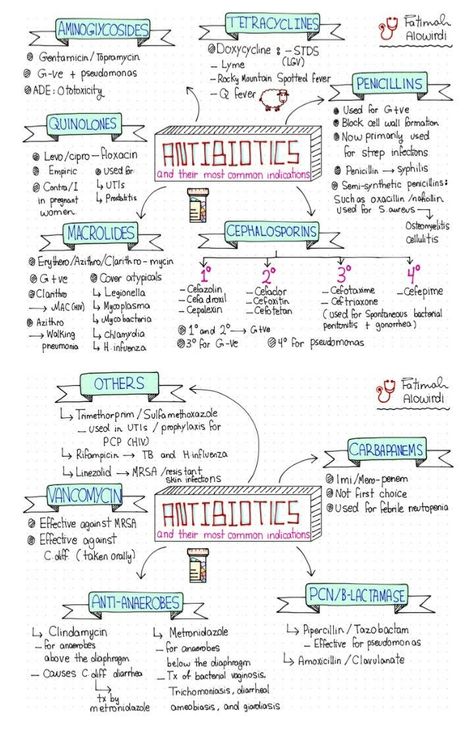 AMINOGLYCOSIDES
Gentamicin / Topramycin
G-ve + pseudomonas
ADE: Ototoxicity
TETRACYCLINES
Doxycycline :- STDS
- Lyme (LGV)
- Rocky Mountain Spotted fever
- Q fever
Fatimah
Alowirdi
PENICILLINS
Used for G+ve
Block cell wall formation
Now primarily used
for strep infections
Penicillin → syphilis
Semi-synthetic penicillins:
Such as oxacillin / nafcillin
used for S. aureus
Osteomyelitis
cellulitis
QUINOLONES
Levo/cipro-floxacin
Empiric
Contra/I
in pregnant
women.
used for
↳ UTIs
↳ Prostatitis
ANTIBIOTICS
and their most common indications
MACROLIDES
Erythero/Azithro/Clarithro-mycin
G+ve
Clarithro
→ MAC (HIV)
Azithro
→ Walking
pneumonia
Cover atypicals
↳ Legionella
↳ Mycoplasma
↳ Mycobacteria
↳ Chlamydia
↳ H. infuenza
CEPHALOSPORINS
1°
- Cefazolin
- Cefa droxil
- Cepalexin
2°
- Cefaclor
- Cefoxitin
- Cefotetan
3°
- Cefotaxime
- Ceftriaxone
(used for Spontaneous bacterial
peritonitis + gonorrhea)
4°
- Cefepime
1° and 2° → G+ve
3° for G-ve
4° for pseudomonas
OTHERS
↳ Trimethoprim / Sulfamethoxazole
- used in UTIs / prophylaxis for
PCP (HIV)
↳ Rifampicin → TB and H influenza
↳ Linezolid → MRSA /resistant
skin infections
Fatimah
Alowirdi
CARBAPANEMS
Imi / Mero-penem
Not first choice
Used for febrile neutopenia
VANCOMYCIN
Effective against MRSA
Effective against
C diff (taken orally)
ANTIBIOTICS
and their most common indications
ANTI-ANAEROBES
↳ Clindamycin
- for anaerobes
above the diaphragm
- Causes C diff diarrhea
↳ tx by
metronidazole
↳ Metronidazole
- for anaerobes
below the diaphragm
- Tx of bacterial vaginosis,
Trichomoniasis, diarrheal
ameobiasis, and giardiasis
PCN/B-LACTAMASE
↳ Pipercillin / Tazobactam
- Effective for pseudomonas
↳ Amoxicillin / Clavulanate